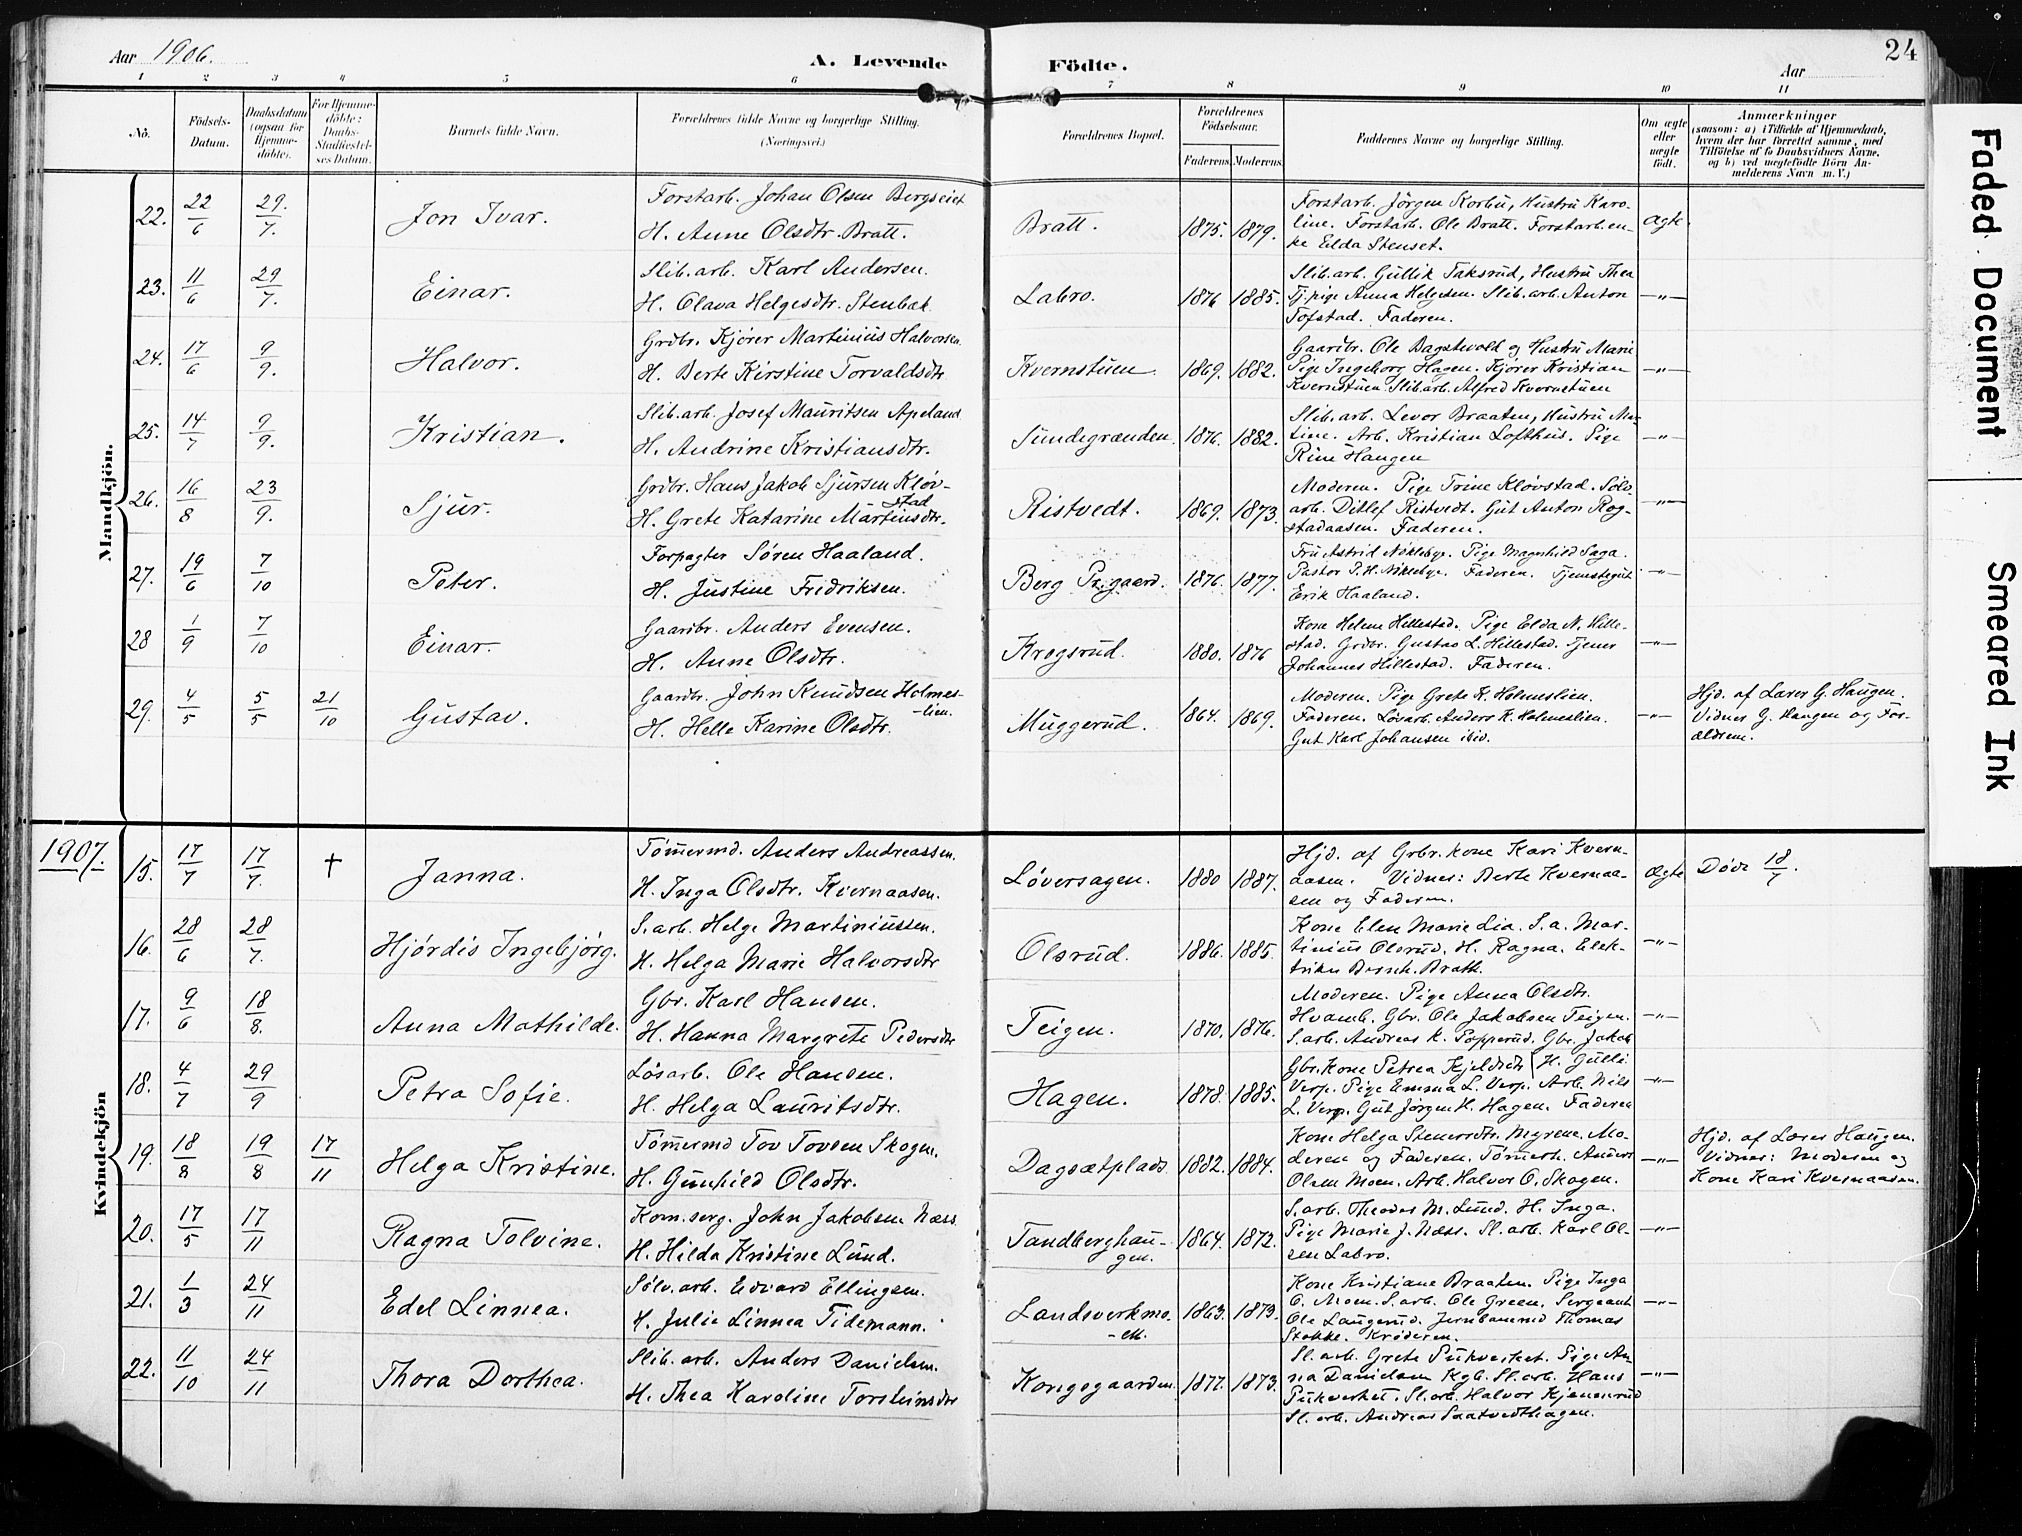 Aar 1906.
A. Levende Födte.
Aar
24
1 2 3 4 5 6 7 8 9 10 11
No. Födsels-Datum. Daabsdatum (ogsaa for Hjemme-döbte). For Hjemme-döbte: Daabs-Stadfæstel-ses Datum. Barnets fulde Navn. Forældrenes fulde Navne og borgerlige Stilling. (Næringsvei.) Forældrenes Bopæl. Forældrenes Födselsaar. Faderens. Moderens. Faddernes Navne og borgerlige Stilling. Om ægte eller uægte födt. Anmærkninger (saasom: a) i Tilfælde af Hjemmedaab, hvem der har forrettet samme, med Tilföielse af to Daabsvidners Navne, og b) ved uægtefödte Börn Anmelderens Navn m. V.)
Mandkjön.
22. 22/6 29./7. Jon Ivar. Forstarb. Johan Olsen Bergseiet
H. Anne Olsdtr. Bratt. Bratt. 1875. 1879. Forstarb. Jörgen Korbu, Hustru Karo-
line. Forstarb. Ole Bratt. Forstarb.en-
ke Elda Stenset. Ægte.
23. 11/6 29/7. Einar. Slib.arb. Karl Andersen.
H. Olava Helgesdtr. Stenbak Labro. 1876 1885. Slib.arb. Gullik Taksrud, Hustru Thea
Tj.pige Anna Helgesen. Slib.arb. Anton
Tofstad. Faderen. -"-
24. 17/6 9/9. Halvor. Grdbr. Kjörer Martinius Halvorsen
H. Berte Kirstine Torvaldsdtr Kvernstuen. 1869. 1882. Gaardbr. Ole Dagstvold og Hustru Marie
Pige Ingeborg Hagen. Kjörer Kristian
Kvernstuen Slib.arb. Alfred Kvernstuen -"-
25. 14/7 9/9. Kristian. Slib.arb. Josef Mauritsen Apeland
H. Andrine Kristiansdtr. Sundegrænden. 1876. 1882. Slib.arb. Levor Braaten, Hustru Mar-
tine. Arb. Kristian Lofthus. Pige
Rine Haugen -"-
26. 16/8 23/9. Sjur. Grdbr. Hans Jakob Sjursen Kløv-
stad
H. Grete Katarine Martinsdtr. Ristvedt. 1869. 1873. Moderen. Pige Trine Kløvstad. Sølv-
arb. Ditlef Ristvedt. Gut Anton Rog-
stadaasen. Faderen. -"-
27. 19/6 7/10 Peter. Forpagter Søren Haaland.
H. Justine Fredriksen. Berg Pr.gaard. 1876. 1877. Fru Astrid Nøklebye. Pige Magnhild Saga.
Pastor P.H. Nøklebye. Faderen. Tjenstegut
Erik Haaland. -"-
28 1/9 7/10 Einar. Gaardbr. Anders Evensen.
H. Anne Olsdtr. Krogsrud. 1880. 1876 Kone Helene Hillestad. Pige Elda N. Hille-
stad. Grdbr. Gustav L. Hillestad. Tjener
Johannes Hillestad. Faderen. -"-
29. 4/5 5/5 21/10 Gustav. Gaardbr. John Knudsen Holmes-
-lien.
H. Helle Karine Olsdtr. Muggerud. 1864. 1869. Moderen. Pige Grete K. Holmeslien.
Faderen. Løsarb. Anders K. Holmeslien.
Gut Karl Johansen ibid. -"- Hjd. af Lærer G. Haugen.
Vidner G. Haugen og For-
ældrene.
1907.
Kvindekjön
15. 17/7 17/7. † Janna. Tömermd. Anders Andreassen.
H. Inga Olsdtr. Kvernaasen. Løversagen. 1880 1887. Hjd. af Grbr.kone Kari Kvern-
aasen. Vidner: Berte Kvernaa-
sen og Faderen. Ægte Døde 18/7.
16. 28/6 28/7. Hjördis Ingebjörg. S.arb. Helge Martiniussen.
H. Helga Marie Halvorsdtr Olsrud. 1886. 1885. Kone Elen Marie Lia. S.a. Mar-
tinius Olsrud. H. Ragna. Elek-
triker Bernh. Bratt. -"-
17. 9/6 18/8. Anna Mathilde. Gbr. Karl Hansen.
H. Hanna Margrete Pedersdtr Teigen. 1870. 1876. Moderen. Pige Anna Olsdtr.
Hvamb. Gbr. Ole Jakobsen Teigen.
S.arb. Andreas K. Popperud. Gbr. Jakob
H. Gulli -"-
18. 4/7 29/9 Petra Sofie. Løsarb. Ole Hansen.
H. Helga Lauritsdtr. Hagen. 1878. 1885. Gbr.kone Petrea Kjeldsdtr
Verp. Pige Emma L. Verp. Arb. Nils
L. Verp. Gut Jørgen H. Hagen. Faderen -"-
19. 18/8 19/8 17/11 Helga Kristine. Tömermd Tov Tovsen Skogen.
H. Gunhild Olsdtr. Dagsætplads 1882. 1884. Kone Helga Stenersdtr. Myrene. Mo-
deren og Faderen. Tömerm. Anders
Olsen Moen. Arb. Halvor O. Skogen. -"- Hjd. af Lærer Haugen.
Vidner: Moderen og
Kone Kari Kvernaasen.
20. 17/5 17/11 Ragna Tolvine. Kom.serg. John Jakobsen Næss
H. Hilda Kristine Lund. Tandberghau-
gen. 1864. 1872. S.arb. Theodor M. Lund. H. Inga.
Pige Marie J. Næss. Sl.arb. Karl Ol-
sen Labro. -"-
21. 1/3 24/11 Edel Linnea. Sølv.arb. Edvard Ellingsen.
H. Julie Linnea Tidemann. Landsverkmo-
-en. 1863. 1873. Kone Kristiane Braaten. Pige Inga
O. Moen. S.arb. Ole Green. Sergeant
Ole Laugerud. Jernbanemd Thomas
Stokke. Krøderen. -"-
22. 11/10 24/11 Thora Dorthea. Slib.arb. Anders Danielsen.
H. Thea Karoline Torsteinsdtr Kongsgaarden. 1877. 1873. Sl.arb. Grete Pukverket. Pige An-
na Danielsen Kgb. Sl.arb. Hans
Pukverket. Sl.arb. Halvor Kjennerud
Sl.arb. Andreas Saatvedthagen. -"-
Faded Document
Smeared Ink